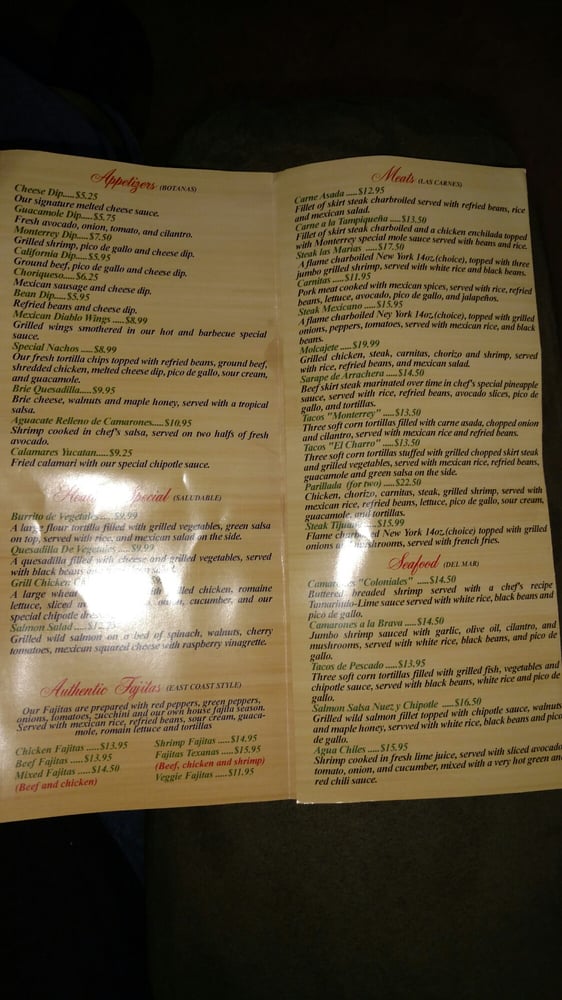 Appetizers (BOTANAS)
Cheese Dip.....$5.25
Our signature melted cheese sauce.
Guacamole Dip.....$5.75
Fresh avocado, onion, tomato, and cilantro.
Monterrey Dip.....$7.50
Grilled shrimp, pico de gallo and cheese dip.
California Dip.....$5.95
Ground beef, pico de gallo and cheese dip.
Choriqueso.....$6.25
Mexican sausage and cheese dip.
Bean Dip.....$5.95
Refried beans and cheese dip.
Mexican Diablo Wings .....$8.99
Grilled wings smothered in our hot and barbecue special
sauce.
Special Nachos .....$8.99
Our fresh tortilla chips topped with refried beans, ground beef,
shredded chicken, melted cheese dip, pico de gallo, sour cream,
and guacamole.
Brie Quesadilla.....$9.95
Brie cheese, walnuts and maple honey, served with a tropical
salsa.
Aguacate Relleno de Camarones.....$10.95
Shrimp cooked in chef's salsa, served on two halves of fresh
avocado.
Calamares Yucatan.....$9.25
Fried calamari with our special chipotle sauce.
Special (SALUDABLE)
Burrito de Vegetales .....$9.99
A large flour tortilla filled with grilled vegetables, green salsa
on top, served with rice, and mexican salad on the side.
Quesadilla De Vegetales .....$9.99
A quesadilla filled with cheese and grilled vegetables, served
with black beans
Grill Chicken
A large chicken, romaine
lettuce, sliced onion, cucumber, and our
special chipotle
Salmon Salad
Grilled wild salmon on a bed of spinach, walnuts, cherry
tomatoes, mexican squared cheese with raspberry vinagrette.
Authentic Fajitas (EAST COAST STYLE)
Our Fajitas are prepared with red peppers, green peppers,
onions, tomatoes, zucchini and our own house fajita season.
Served with mexican rice, refried beans, sour cream, guaca-
mole, romain lettuce and tortillas
Chicken Fajitas .....$13.95
Beef Fajitas .....$13.95
Mixed Fajitas .....$14.50
(Beef and chicken)
Shrimp Fajitas .....$14.95
Fajitas Texanas .....$15.95
(Beef, chicken and shrimp)
Veggie Fajitas .....$11.95
Meats (LAS CARNES)
Carne Asada .....$12.95
Fillet of skirt steak charbroiled served with refried beans, rice
and mexican salad.
Carne a la Tampiqueña .....$13.50
Fillet of skirt steak charboiled and a chicken enchilada topped
with Monterrey special mole sauce served with beans and rice.
Steak las Marias .....$17.50
A flame charboiled New York 14oz.(choice), topped with three
jumbo grilled shrimp, served with white rice and black beans.
Carnitas .....$11.95
Pork meat cooked with mexican spices, served with rice, refried
beans, lettuce, avocado, pico de gallo, and jalapeños.
Steak Mexicano .....$15.95
A flame charboiled Ney York 14oz.(choice), topped with grilled
onions, peppers, tomatoes, served with mexican rice, and black
beans.
Molcajete .....$19.99
Grilled chicken, steak, carnitas, chorizo and shrimp, served
with rice, refried beans, and mexican salad.
Sarape de Arrachera .....$14.50
Beef skirt steak marinated over time in chef's special pineapple
sauce, served with rice, refried beans, avocado slices, pico de
gallo, and tortillas.
Tacos "Monterrey" .....$13.50
Three soft corn tortillas filled with carne asada, chopped onion
and cilantro, served with mexican rice and refried beans.
Tacos "El Charro" .....$13.50
Three soft corn tortillas stuffed with grilled chopped skirt steak
and grilled vegetables, served with mexican rice, refried beans,
guacamole and green salsa on the side.
Parillada (for two) .....$22.50
Chicken, chorizo, carnitas, steak, grilled shrimp, served with
mexican rice, refried beans, lettuce, pico de gallo, sour cream,
guacamole, and tortillas.
Steak .....$15.99
Flame New York 14oz.(choice) topped with grilled
onions mushrooms, served with french fries.
Seafood (DEL MAR)
Camarones "Coloniales" .....$14.50
Buttered breaded shrimp served with a chef's recipe
Tamarindo-Lime sauce served with white rice, black beans and
pico de gallo.
Camarones a la Brava .....$14.50
Jumbo shrimp sauced with garlic, olive oil, cilantro, and
mushrooms, served with white rice, black beans, and pico de
gallo.
Tacos de Pescado .....$13.95
Three soft corn tortillas filled with grilled fish, vegetables and
chipotle sauce, served with black beans, white rice and pico de
gallo.
Salmon Salsa Nuez y Chipotle .....$16.50
Grilled wild salmon fillet topped with chipotle sauce, walnuts
and maple honey, servved with white rice, black beans and pico
de gallo.
Agua Chiles .....$15.95
Shrimp cooked in fresh lime juice, served with sliced avocado
tomato, onion, and cucumber, mixed with a very hot green and
red chili sauce.